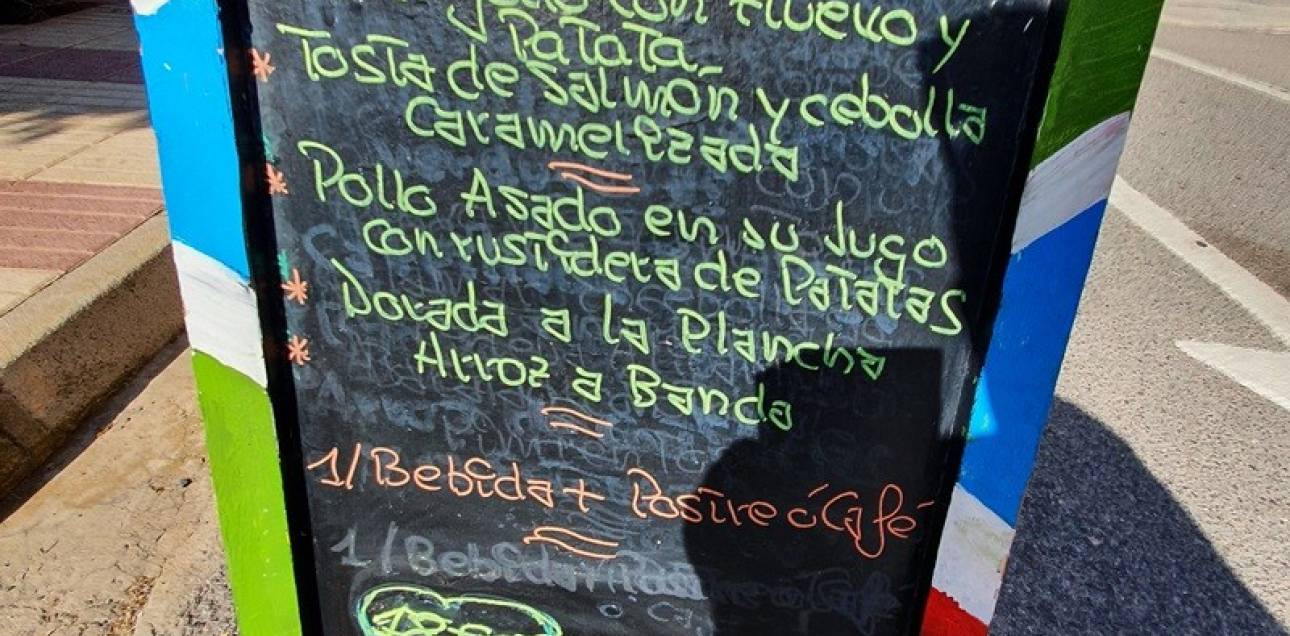 con Huevo y
Patata
* Tosta de Salmón y cebolla
Caramelizada
* Pollo Asado en su Jugo
con rustidera de Patatas
* Dorada a la Plancha
* Arroz a Banda
1/Bebida + Postre ó Café
1/Bebida